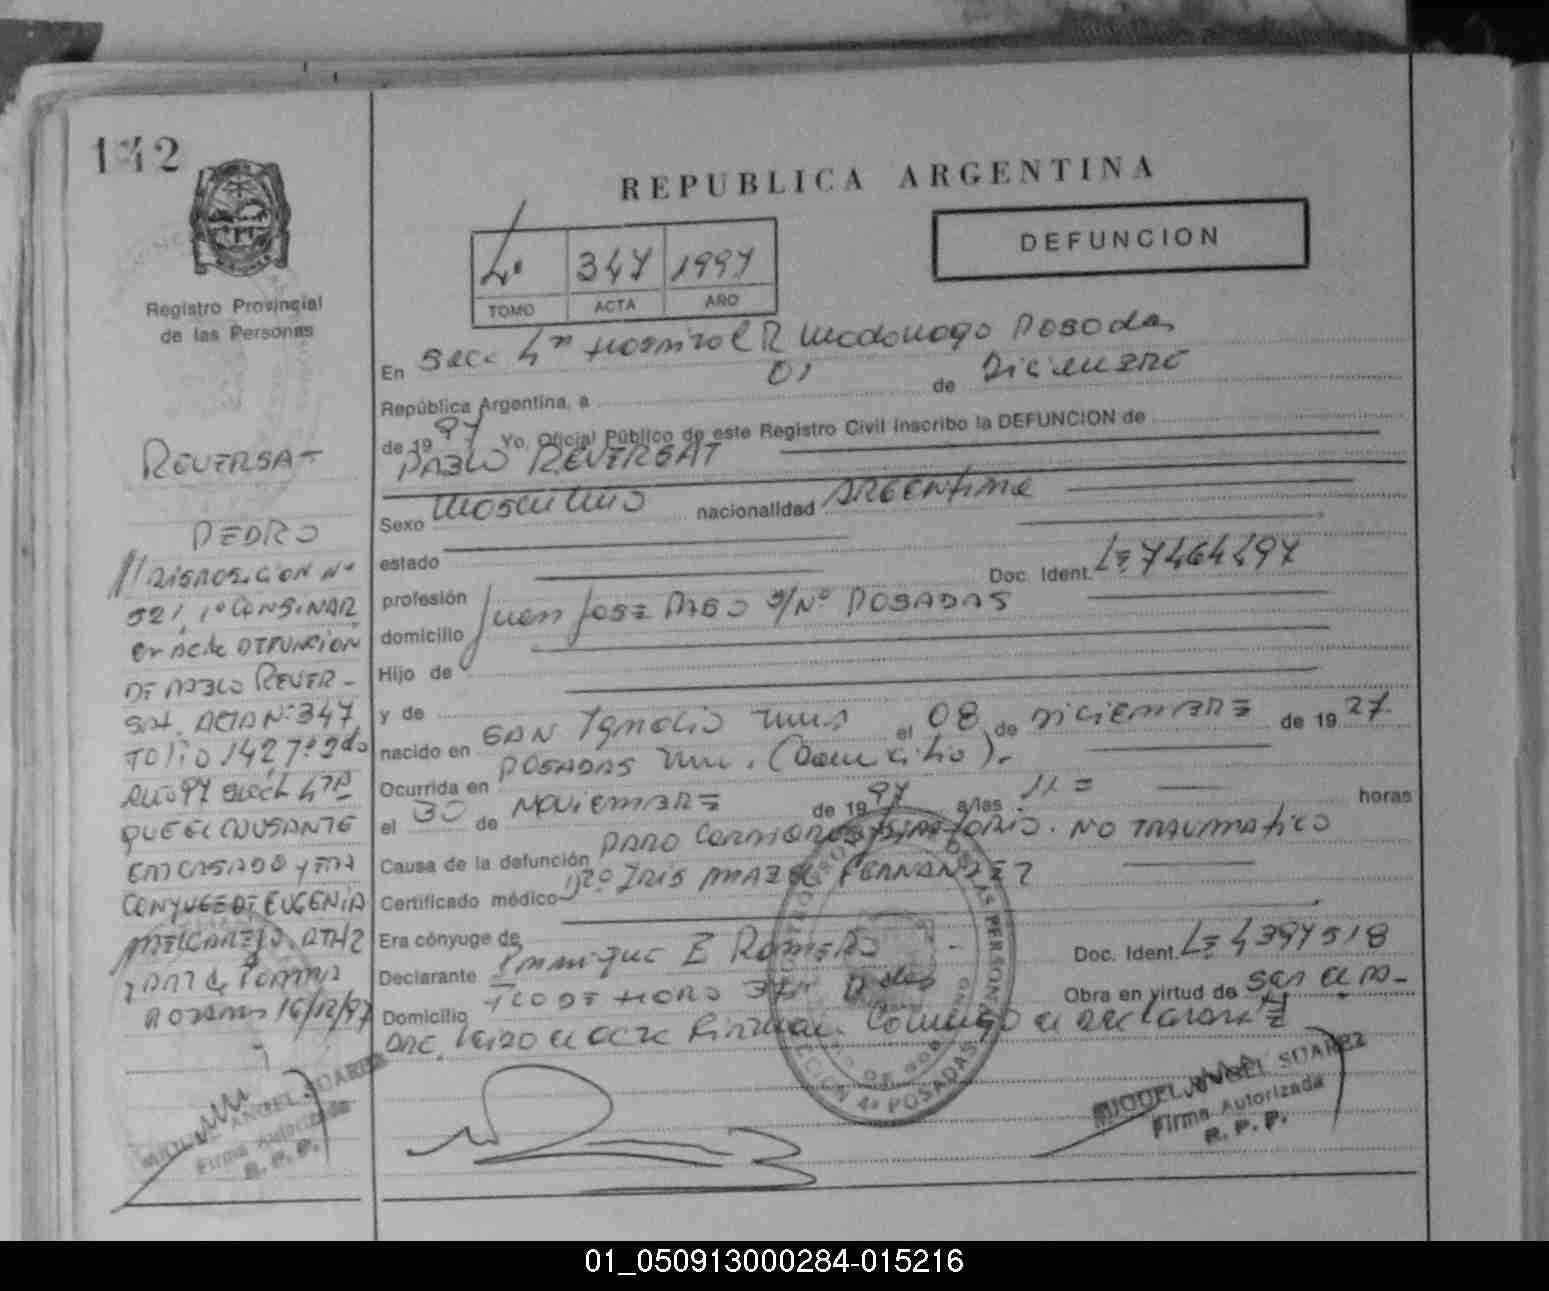 142
Registro Provincial
de las Personas
REPUBLICA ARGENTINA
DEFUNCION
347 1997
TOMO ACTA AÑO
En Secc 4ta Hospital R Madariaga Posadas
República Argentina, a 01 de Diciembre
de 1997 Yo, Oficial Público de este Registro Civil inscribo la DEFUNCION de
PABLO REVERSAT
Sexo masculino nacionalidad ARGENTINA
estado
profesión Doc. Ident. LE 7464497
domicilio Juan José PASO S/Nº POSADAS
Hijo de
y de
nacido en SAN Ignacio Mnes el 08 de DICIEMBRE de 1927
Ocurrida en POSADAS Mnes. (Domicilio).-
el 30 de NOVIEMBRE de 1997 a/las 11= horas
Causa de la defunción PARO Cardiorespiratorio. NO TRAUMATICO
Certificado médico IRIS FERNANDEZ
Era cónyuge de
Declarante Enrique E Romero Doc. Ident. LE 4397518
Domicilio Obra en virtud de ser el
el acta Conmigo el declarante
REVERSAT
PEDRO
// DISPOSICION Nº
521, 1º CONSIGNAR
en Acta DEFUNCION
DE PABLO REVER-
SAT. ACTA Nº 347
FOLIO 142 Tº 2do
AÑO 97 SECC. 4TA
QUE EL CAUSANTE
ERA CASADO y ERA
CONYUGE DE EUGENIA
POSADAS 16/12/97
MIGUEL ANGEL SUAREZ
Firma Autorizada
R. P. P.
DE LAS PERSONAS
SECCION 4ª POSADAS
MIGUEL ANGEL SUAREZ
Firma Autorizada
R. P. P.
01_050913000284-015216